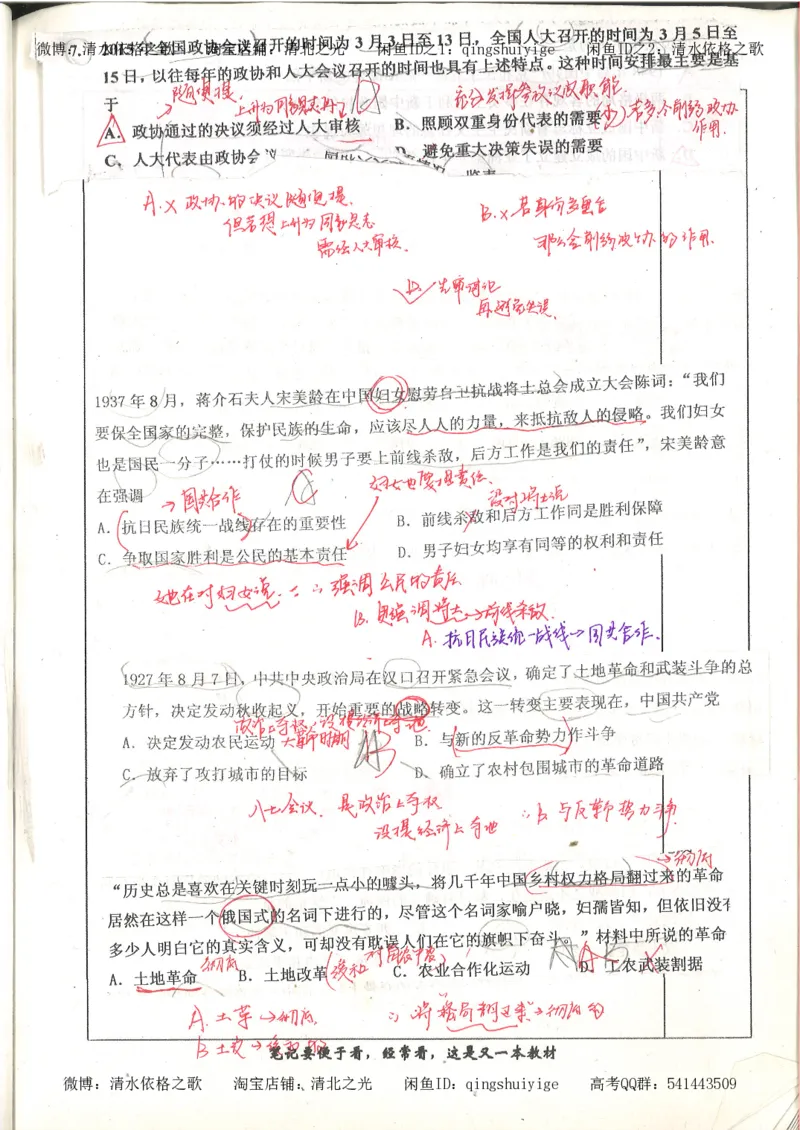 微博：清水依格之歌 淘宝店铺：清北之光 闲鱼ID之1：qingshuiyige 闲鱼ID之2：清水依格之歌
7. 2015年全国政协会议召开的时间为3月3日至13日，全国人大召开的时间为3月5日至
15日，以往每年的政协和人大会议召开的时间也具有上述特点。这种时间安排最主要是基
于
随便提，
上升为国家意志
充分发挥参政议政职能.
若多，会削弱政协
作用.
A. 政协通过的决议须经过人大审核 B. 照顾双重身份代表的需要
C. 人大代表由政协会议 D. 避免重大决策失误的需要
A.× 政协的决议随便提.
但若想上升为国家意志
需经人大审核.
B.× 若身份重合
那么会削弱政协的作用.
D. 先审讨论
再避免失误.
1937年8月，蒋介石夫人宋美龄在中国妇女慰劳自卫抗战将士总会成立大会陈词：“我们
要保全国家的完整，保护民族的生命，应该尽人人的力量，来抵抗敌人的侵略。我们妇女
也是国民一分子……打仗的时候男子要上前线杀敌，后方工作是我们的责任”，宋美龄意
在强调
→国共合作
妇女也要担责任.
没对将士说
A. 抗日民族统一战线存在的重要性 B. 前线杀敌和后方工作同是胜利保障
C. 争取国家胜利是公民的基本责任 D. 男子妇女均享有同等的权利和责任
她在对妇女说. ∴强调公民的责任
B. 更强调将士→前线杀敌.
A. 抗日民族统一战线→国共合作.
1927年8月7日，中共中央政治局在汉口召开紧急会议，确定了土地革命和武装斗争的总
方针，决定发动秋收起义，开始重要的战略转变。这一转变主要表现在，中国共产党
大革命时期
A. 决定发动农民运动 B. 与新的反革命势力作斗争
C. 放弃了攻打城市的目标 D. 确立了农村包围城市的革命道路
八七会议. 是政治上夺权
没提经济上夺地
∴B 与反革命势力斗争
→彻底
“历史总是喜欢在关键时刻玩一点小的噱头，将几千年中国乡村权力格局翻过来的革命
居然在这样一个俄国式的名词下进行的，尽管这个名词家喻户晓，妇孺皆知，但依旧没有
多少人明白它的真实含义，可却没有耽误人们在它的旗帜下奋斗。”材料中所说的革命
彻底
A. 土地革命 B. 土地改革 C. 农业合作化运动 D. 工农武装割据
A. 土革→彻底.
∴将格局翻过来→彻底的
B 土改→
笔记要便于看，经常看，这是又一本教材
微博：清水依格之歌 淘宝店铺：清北之光 闲鱼ID：qingshuiyige 高考QQ群：541443509